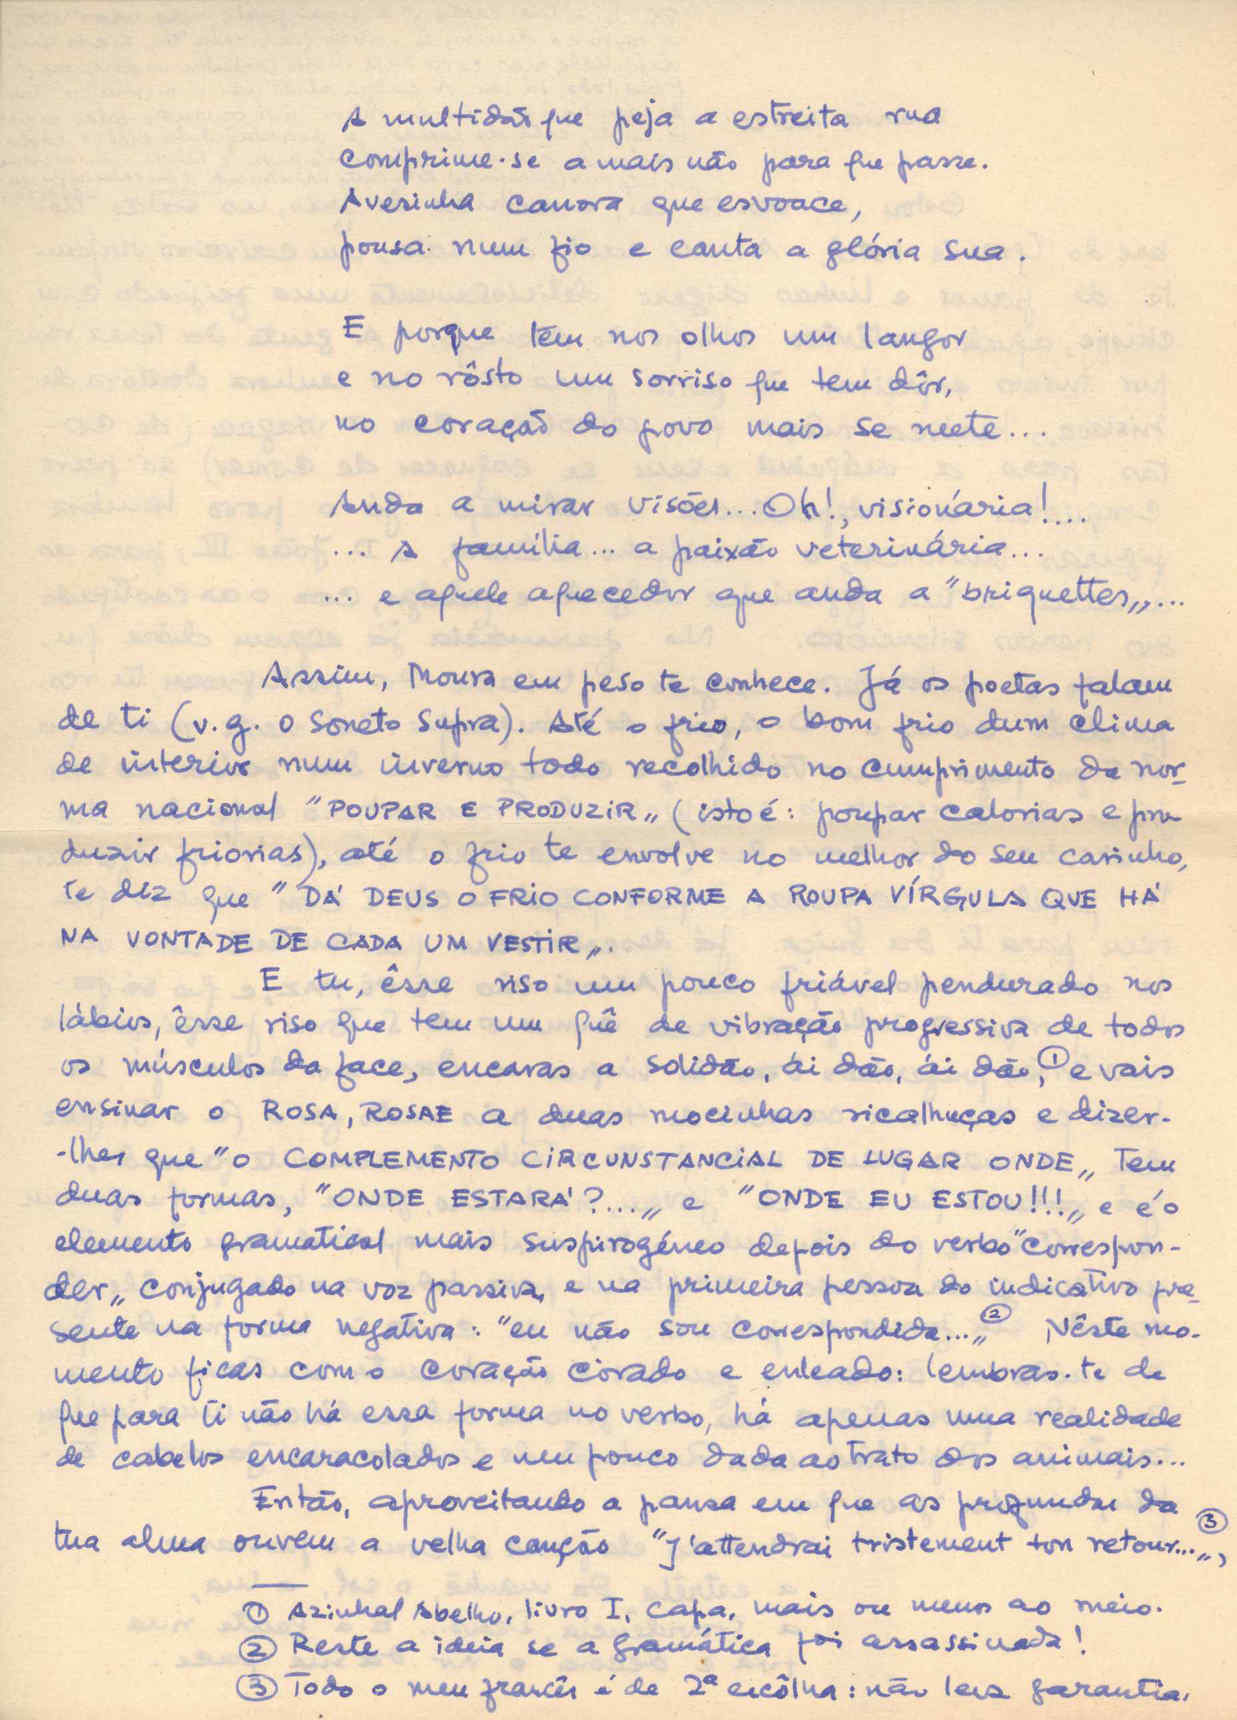 A multidão que peja a estreita rua
comprime-se a mais não para que passe.
Avesinha canora que esvoace,
pousa num fio e canta a glória sua.
E porque tem nos olhos um langor
e no rôsto um sorriso que tem dôr,
no coração do povo mais se mete...
Anda a mirar visões... Oh!, visionária!...
... A família... a paixão veterinária...
... e aquele aquecedor que anda a "briquettes"...
Assim, Moura em peso te conhece. Já os poetas falam
de ti (v.g. o soneto supra). Até o frio, o bom frio dum clima
de interior num inverno todo recolhido no cumprimento da nor-
ma nacional "POUPAR E PRODUZIR" (isto é: poupar calorias e pro
duzir friorias), até o frio te envolve no melhor do seu carinho,
te diz que "DÁ DEUS O FRIO CONFORME A ROUPA VÍRGULA QUE HÁ
NA VONTADE DE CADA UM VESTIR".
E tu, êsse riso um pouco friável pendurado nos
lábios, êsse riso que tem um quê de vibração progressiva de todos
os músculos da face, encaras a solidão, ái dão, ái dão, ① e vais
ensinar o ROSA, ROSAE a duas mocinhas ricalhuças e dizer-
-lhes que "O COMPLEMENTO CIRCUNSTANCIAL DE LUGAR ONDE" tem
duas formas, "ONDE ESTARÁ?..." e "ONDE EU ESTOU!!!" e é o
elemento gramatical mais suspirogéneo depois do verbo "correspon-
der" conjugado na voz passiva, e na primeira pessoa do indicativo pre-
sente na forma negativa: "eu não sou correspondida..." ② Nêste mo-
mento ficas com o coração corado e enleado: lembras-te de
que para ti não há essa forma no verbo, há apenas uma realidade
de cabelos encaracolados e um pouco dada ao trato dos animais...
Então, aproveitando a pausa em que as profundas da
tua alma ouvem a velha canção "J'attendrai tristement ton retour...", ③
① Azinhal Abelho, livro I, capa, mais ou menos ao meio.
② Reste a ideia se a gramática foi assassinada!
③ Todo o meu francês é de 2ª escôlha: não leva garantia.